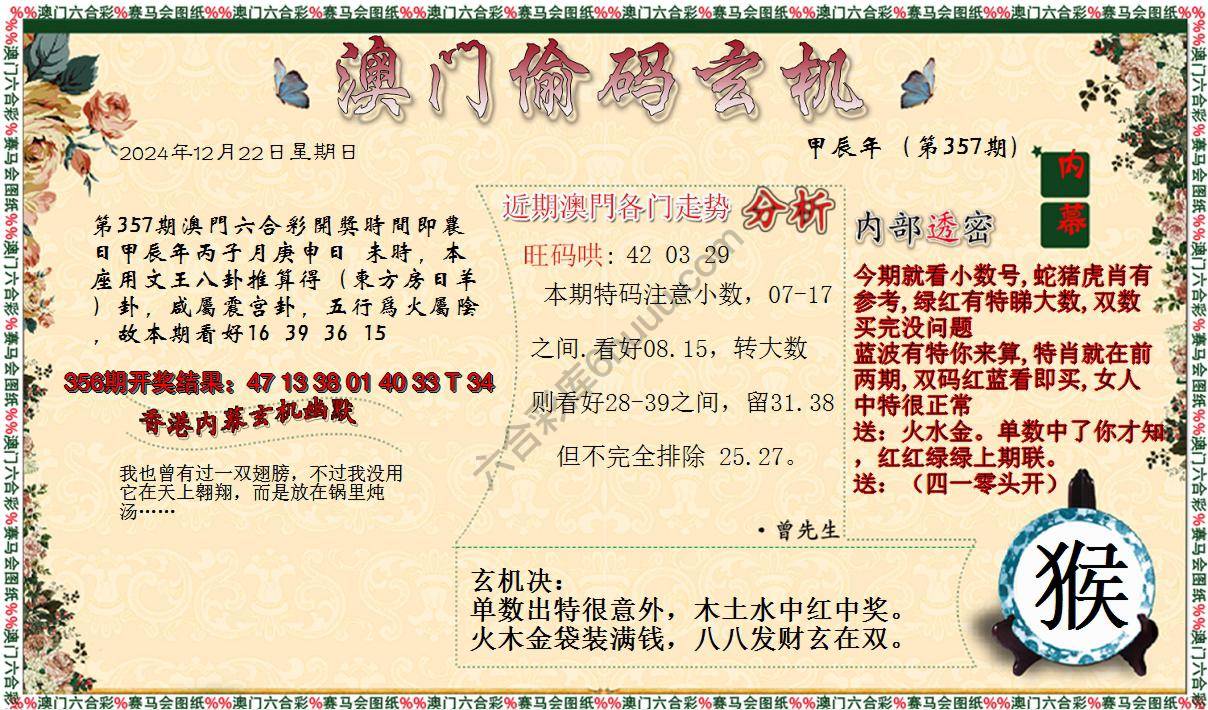 %%澳门六合彩%赛马会图纸%%澳门六合彩%赛马会图纸%%澳门六合彩%赛马会图纸%%澳门六合彩%赛马会图纸%%澳门六合彩%赛马会图纸%%澳门六合彩%赛马会图纸%%
澳门偷码玄机
2024年12月22日星期日
甲辰年（第357期）
内
幕
第357期澳門六合彩開獎時間即農
日甲辰年丙子月庚申日 未時，本
座用文王八卦推算得（東方房日羊
）卦，咸屬震宫卦，五行爲火屬陰
，故本期看好16 39 36 15
356期开奖结果：47 13 38 01 40 33 T 34
香港内幕玄机幽默
我也曾有过一双翅膀，不过我没用
它在天上翱翔，而是放在锅里炖
汤……
近期澳門各门走势 分析
旺码哄: 42 03 29
本期特码注意小数，07-17
之间.看好08.15，转大数
则看好28-39之间，留31.38
但不完全排除 25.27。
·曾先生
内部透密
今期就看小数号,蛇猪虎肖有
参考,绿红有特睇大数,双数
买完没问题
蓝波有特你来算,特肖就在前
两期,双码红蓝看即买,女人
中特很正常
送：火水金。单数中了你才知
，红红绿绿上期联。
送：（四一零头开）
猴
玄机决：
单数出特很意外，木土水中红中奖。
火木金袋装满钱，八八发财玄在双。
%%澳门六合彩%赛马会图纸%%澳门六合彩%赛马会图纸%%澳门六合彩%赛马会图纸%%澳门六合彩%赛马会图纸%%澳门六合彩%赛马会图纸%%澳门六合彩%赛马会图纸%%